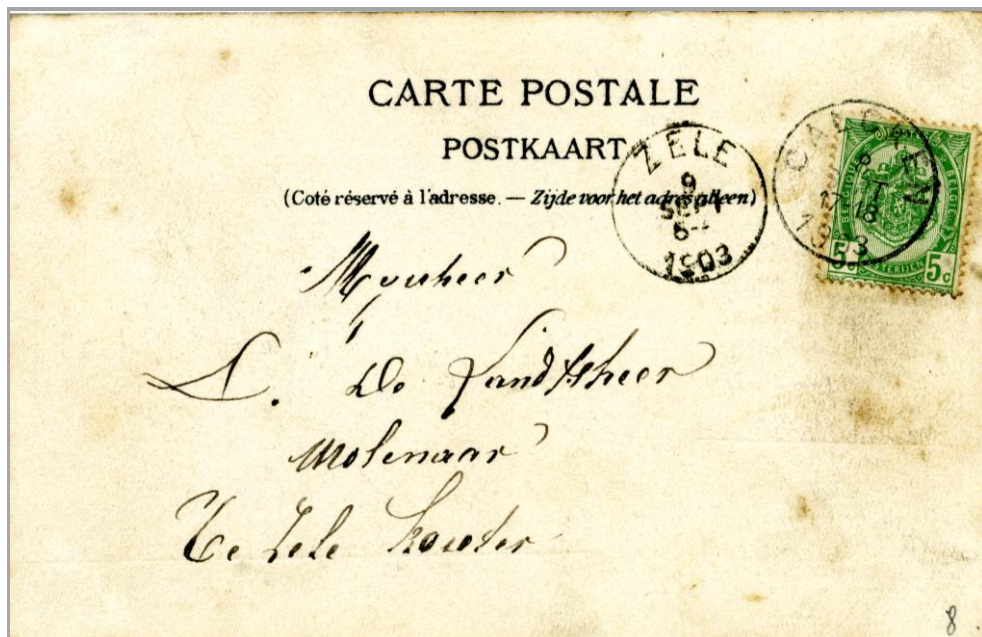 CARTE POSTALE
POSTKAART
(Coté réservé à l'adresse. — Zijde voor het adres alleen)
ZELE
9
SEPT
6-
1903
CALCKEN
8
17-18
1903
5c 5c
Mynheer
L. De Landtsheer
Molenaar
Te Zele Kouter
8